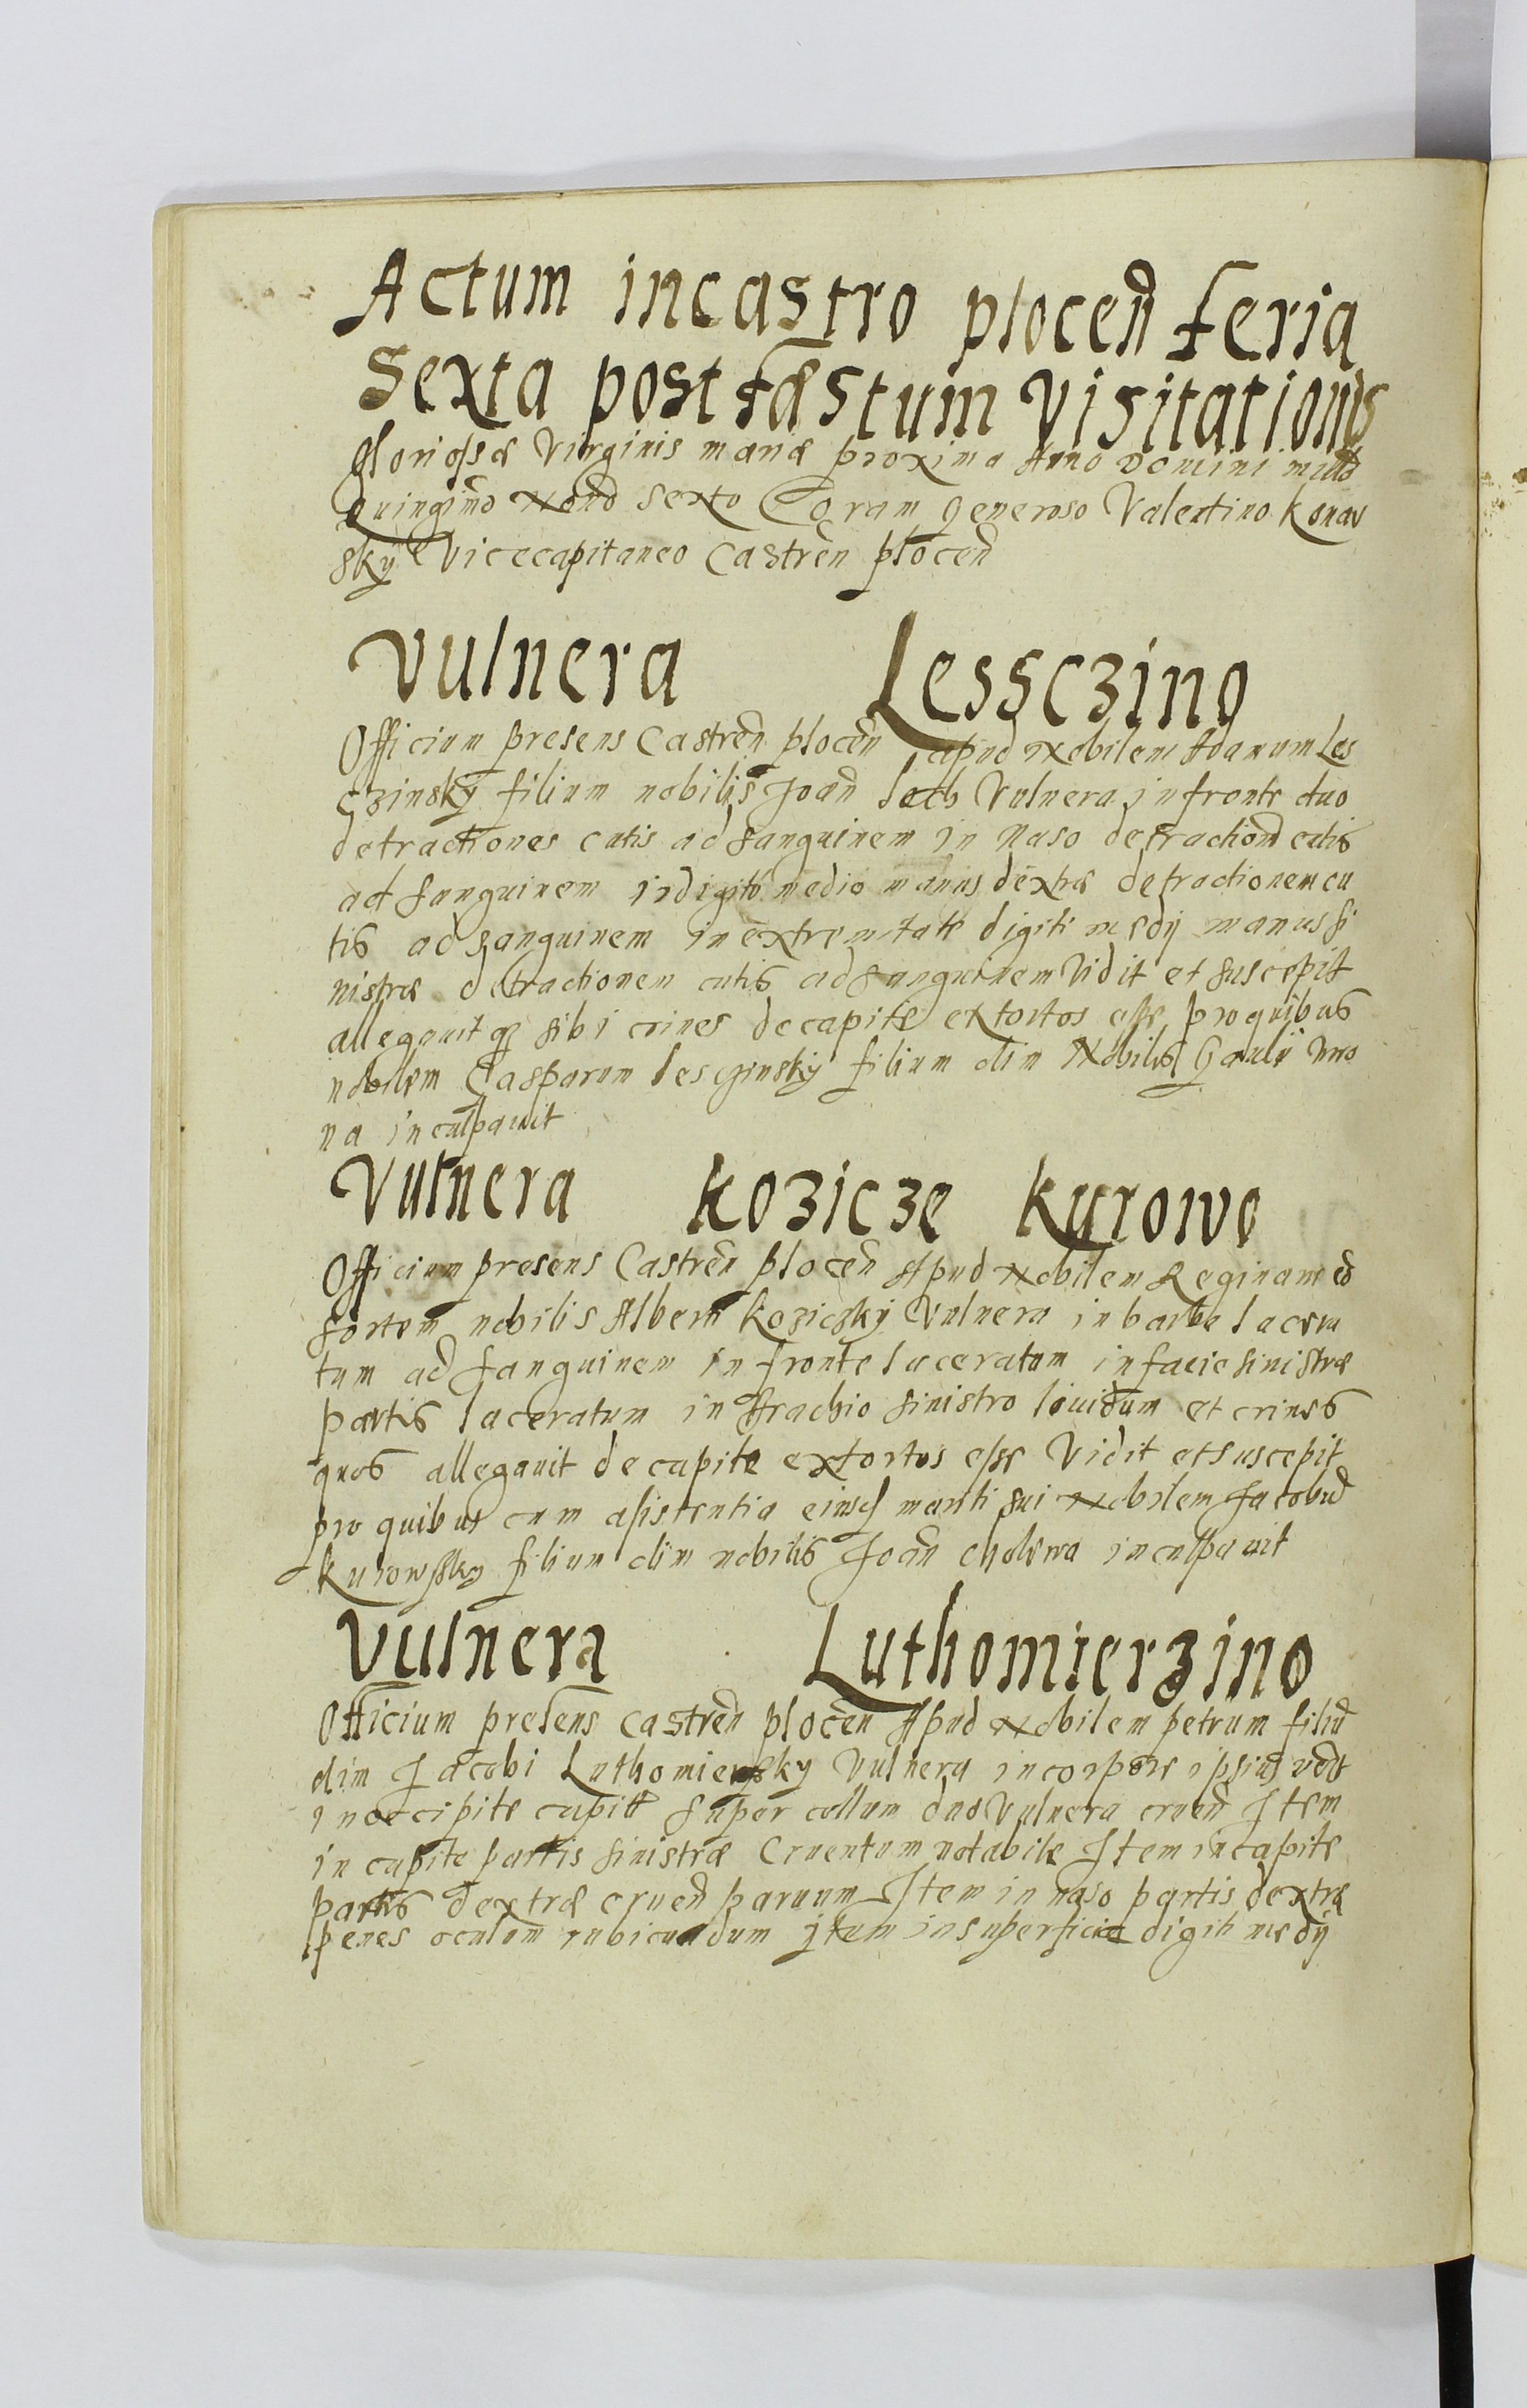 Actum in castro plocen̄ feria
Sexta post fæstum Visitationis
gloriossæ Virginis mariæ proxima Anno Domini mill̄o
quingm̄o Nono Sexto Coram generoso Valentino Konar
sky Vicecapitaneo Castren̄ plocen̄
Vulnera Lessczino
Officium presens Castren̄ plocen̄ apud Nobilem Adamum Les
czinsky filium nobilis Joan̄ Lech Vulnera in fronte duo
detractiones cutis ad sanguinem in Naso detractionem cutis
ad sanguinem in digito medio manus dextræ detractionem cu
tis ad sanguinem in extremitate digiti medij manus si
nistræ detractionem cutis ad sanguinem Vidit et suscepit
allegauit sibi crines de capite extortos esse pro quibus
nobilem Casparum filium olim Nobilis
na inculpauit
Vulnera Kozicze Kurowo
Officium presens Castren̄ plocen̄ Apud Nobilem Reginam co
sortem nobilis Alberti Koziczky Vulnera in barba lacera
tum ad sanguinem in fronte laceratum in facie sinistræ
partis laceratum in Brachio sinistro liuidum et crines
quos allegauit de capite extortos esse Vidit et suscepit
pro quibus cum asistentia mariti sui Nobilem Jacobū
Kurowssky filium olim nobilis Joan̄ cholewa inculpauit
Vulnera Luthomierzino
Officium presens Castren̄ plocen̄ Apud Nobilem petrum filiū
olim Jacobi Luthomiersky Vulnera in corpore ipsius
in occipite super collum duo Vulnera cruen̄ Item
in capite partis sinistræ Cruentum notabile Item in capite
partis dextræ cruen̄ paruum Item in naso partis dextræ
penes oculum rubicundum jtem in superficie digiti medij